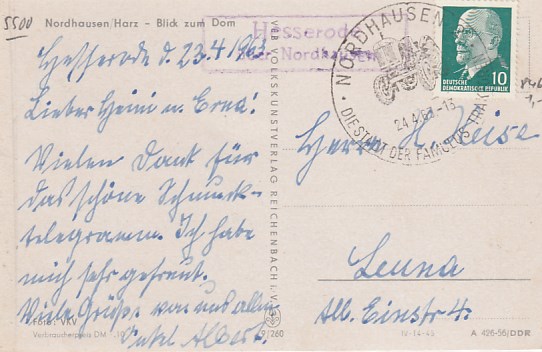 5500
Nordhausen/Harz - Blick zum Dom
Hesserode
über Nordhausen
Hesserode d. 23.4.1963
Lieber Heini u. Erna!
Vielen Dank für
das schöne Schmuck-
telegramm. Ich habe
mich sehr gefreut.
Viele Grüße von uns allen
Onkel Albert.
Foto: VKV
Verbraucherpreis DM
9/260
VEB VOLKSKUNSTVERLAG REICHENBACH i. V.
NORDHAUSEN
24.4.63.-13
DIE STADT DER FAMULUS-TRAK
10
DEUTSCHE
DEMOKRATISCHE REPUBLIK
Herrn H. Zeise
Leuna
Alb. Einstr. 4.
A 426-56/DDR